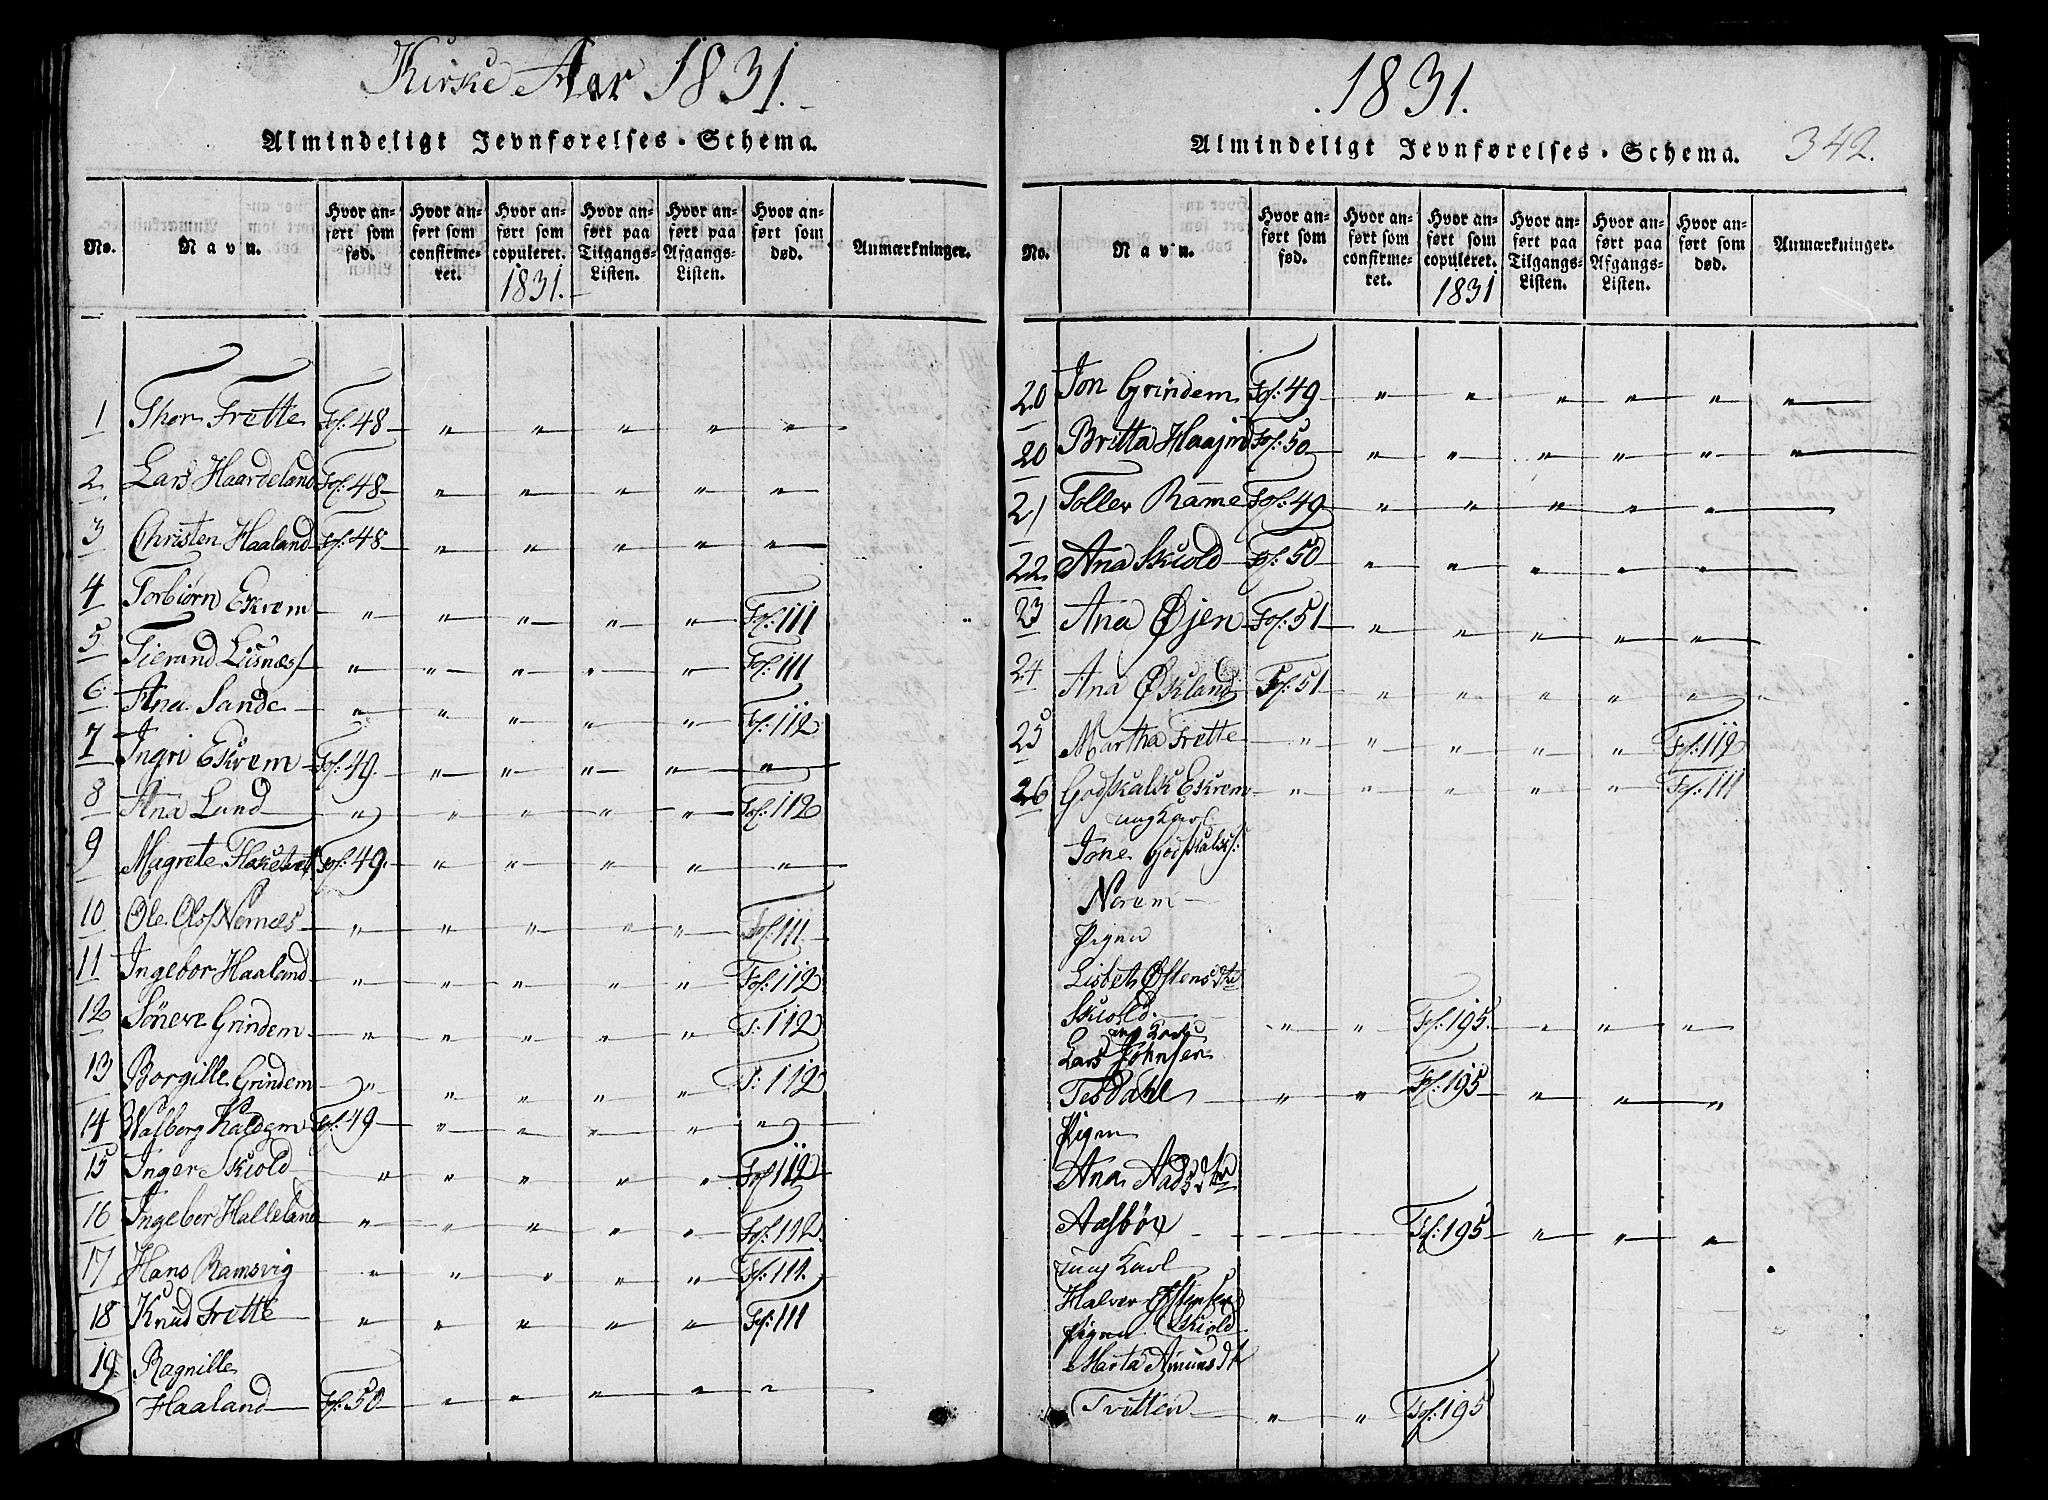 Kirke Aar 1831.
Almindeligt Jevnførelses-Schema.
No. Navn. Hvor anført som fød. Hvor anført som confirmeret. Hvor anført som copuleret. 1831. Hvor anført paa Tilgangs-Listen. Hvor anført paa Afgangs-Listen. Hvor anført som død. Anmærkninger.
1 Thor Frette Fol: 48 " " " " "
2. Lars Haardeland Fol: 48 " " " " "
3 Christen Haaland Fol: 48 " " " " "
4 Torbiørn Eskrem " " " " " Fol: 111
5 Tierand Lisnæs " " " " " Fol: 111
6 Ana Sande " " " " " Fol: 112
7 Ingri Eskrem Fol: 49. " " " " "
8 Ana Lund " " " " " Fol: 112
9 Magrete Fol: 49. " " " " "
10 Ole Ols: Nernæs " " " " " Fol: 111
11 Ingebor Haaland " " " " " Fol: 112
12 Søneve Grindem " " " " " F: 112
13 Borgille Grindem " " " " " F: 112
14 Walborg Kaldem Fol: 49 " " " " "
15 Inger Skiold " " " " " Fol 112
16 Ingebor Halleland " " " " " Fol: 112.
17 Hans Ramsvig " " " " " Fol: 111.
18 Knud Frette " " " " " Fol: 111
19 Ragnille
Haaland Fol: 50 " " " " "
1831.
Almindeligt Jevnførelses-Schema. 342.
No. Navn. Hvor anført som fød. Hvor anført som confirmeret. Hvor anført som copuleret. 1831 Hvor anført paa Tilgangs-Listen. Hvor anført paa Afgangs-Listen. Hvor anført som død. Anmærkninger.
20 Jon Grindem Fol: 49 " " " " "
20 Britta Fol: 50 " " " " "
21 Tollev Rame Fol: 49 " " " " "
22 Ana Skiold Fol: 50 " " " " "
23 Ana Øjen Fol: 51 " " " " "
24 Ana Øskland Fol: 51 " " " " "
25 Martha Frette " " " " " Fol: 112
26 Godskalk Eskrem " " " " " Fol: 111
ung Karl
Jone Godskalks:
Norem
Pigen
Lisbeth Østensdtr
Skiold. " " Fol: 195. " " "
ung Karl
Lars Johnsen
Tesdahl " " Fol: 195 " " "
Pigen
Ana Aadsdtr
Aasbøe Fol: 195 " " "
ung Karl
Halver Østensen
Pigen Skiold
Marta Amunsdtr
Tvitten " " Fol: 195